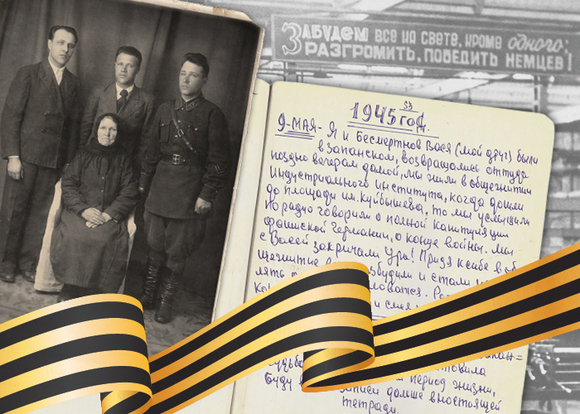 ЗАБУДЕМ ВСЕ НА СВЕТЕ, КРОМЕ ОДНОГО:
РАЗГРОМИТЬ, ПОБЕДИТЬ НЕМЦЕВ!
53
1945 год.
9-МАЯ - Я и Бесмертнов Вася (мой друг) были
в запанском, возвращались оттуда
поздно вечером домой, мы жили в общежитии
Индустриального института, когда дошли
до площади им. Куйбышева, то мы услышали
по радио говорили о полной капитуляции
фашиской Германии, о конце войны. Мы
с Васей закричали Ура! Придя к себе в об
щежитие и стали
период жизни,
Буду дальше в настоящей
тетради